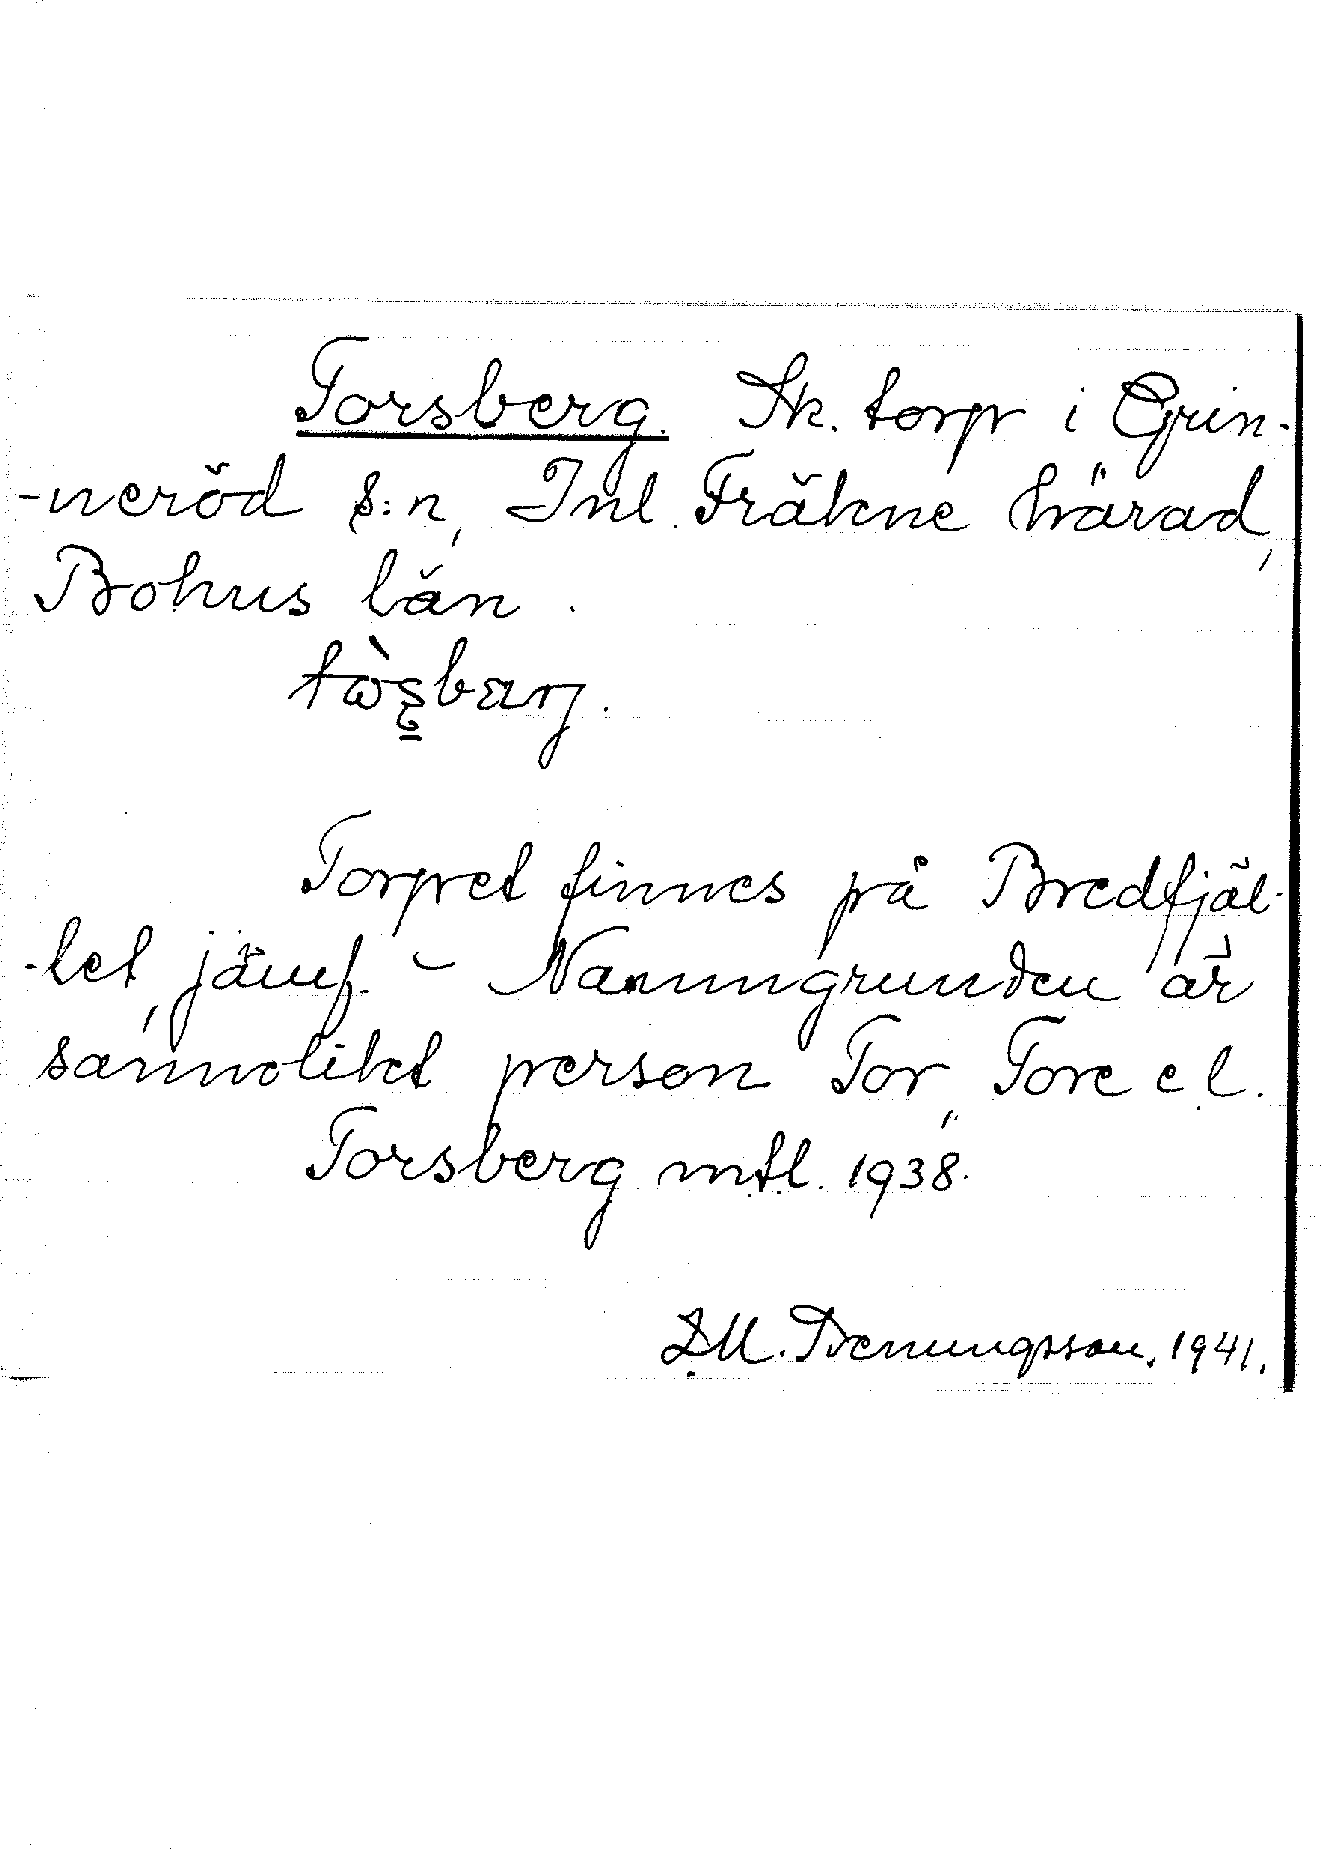 Torsberg. Sk. torp i Grin-
-neröd s:n, Inl. Fräkne härad,
Bohus län.
Torpet finnes på Bredfjäl-
-let, jämf. – Namngrunden är
sannolikt person Tor, Tore el.
Torsberg mtl. 1938.
D.M. Bennungsson. 1941.